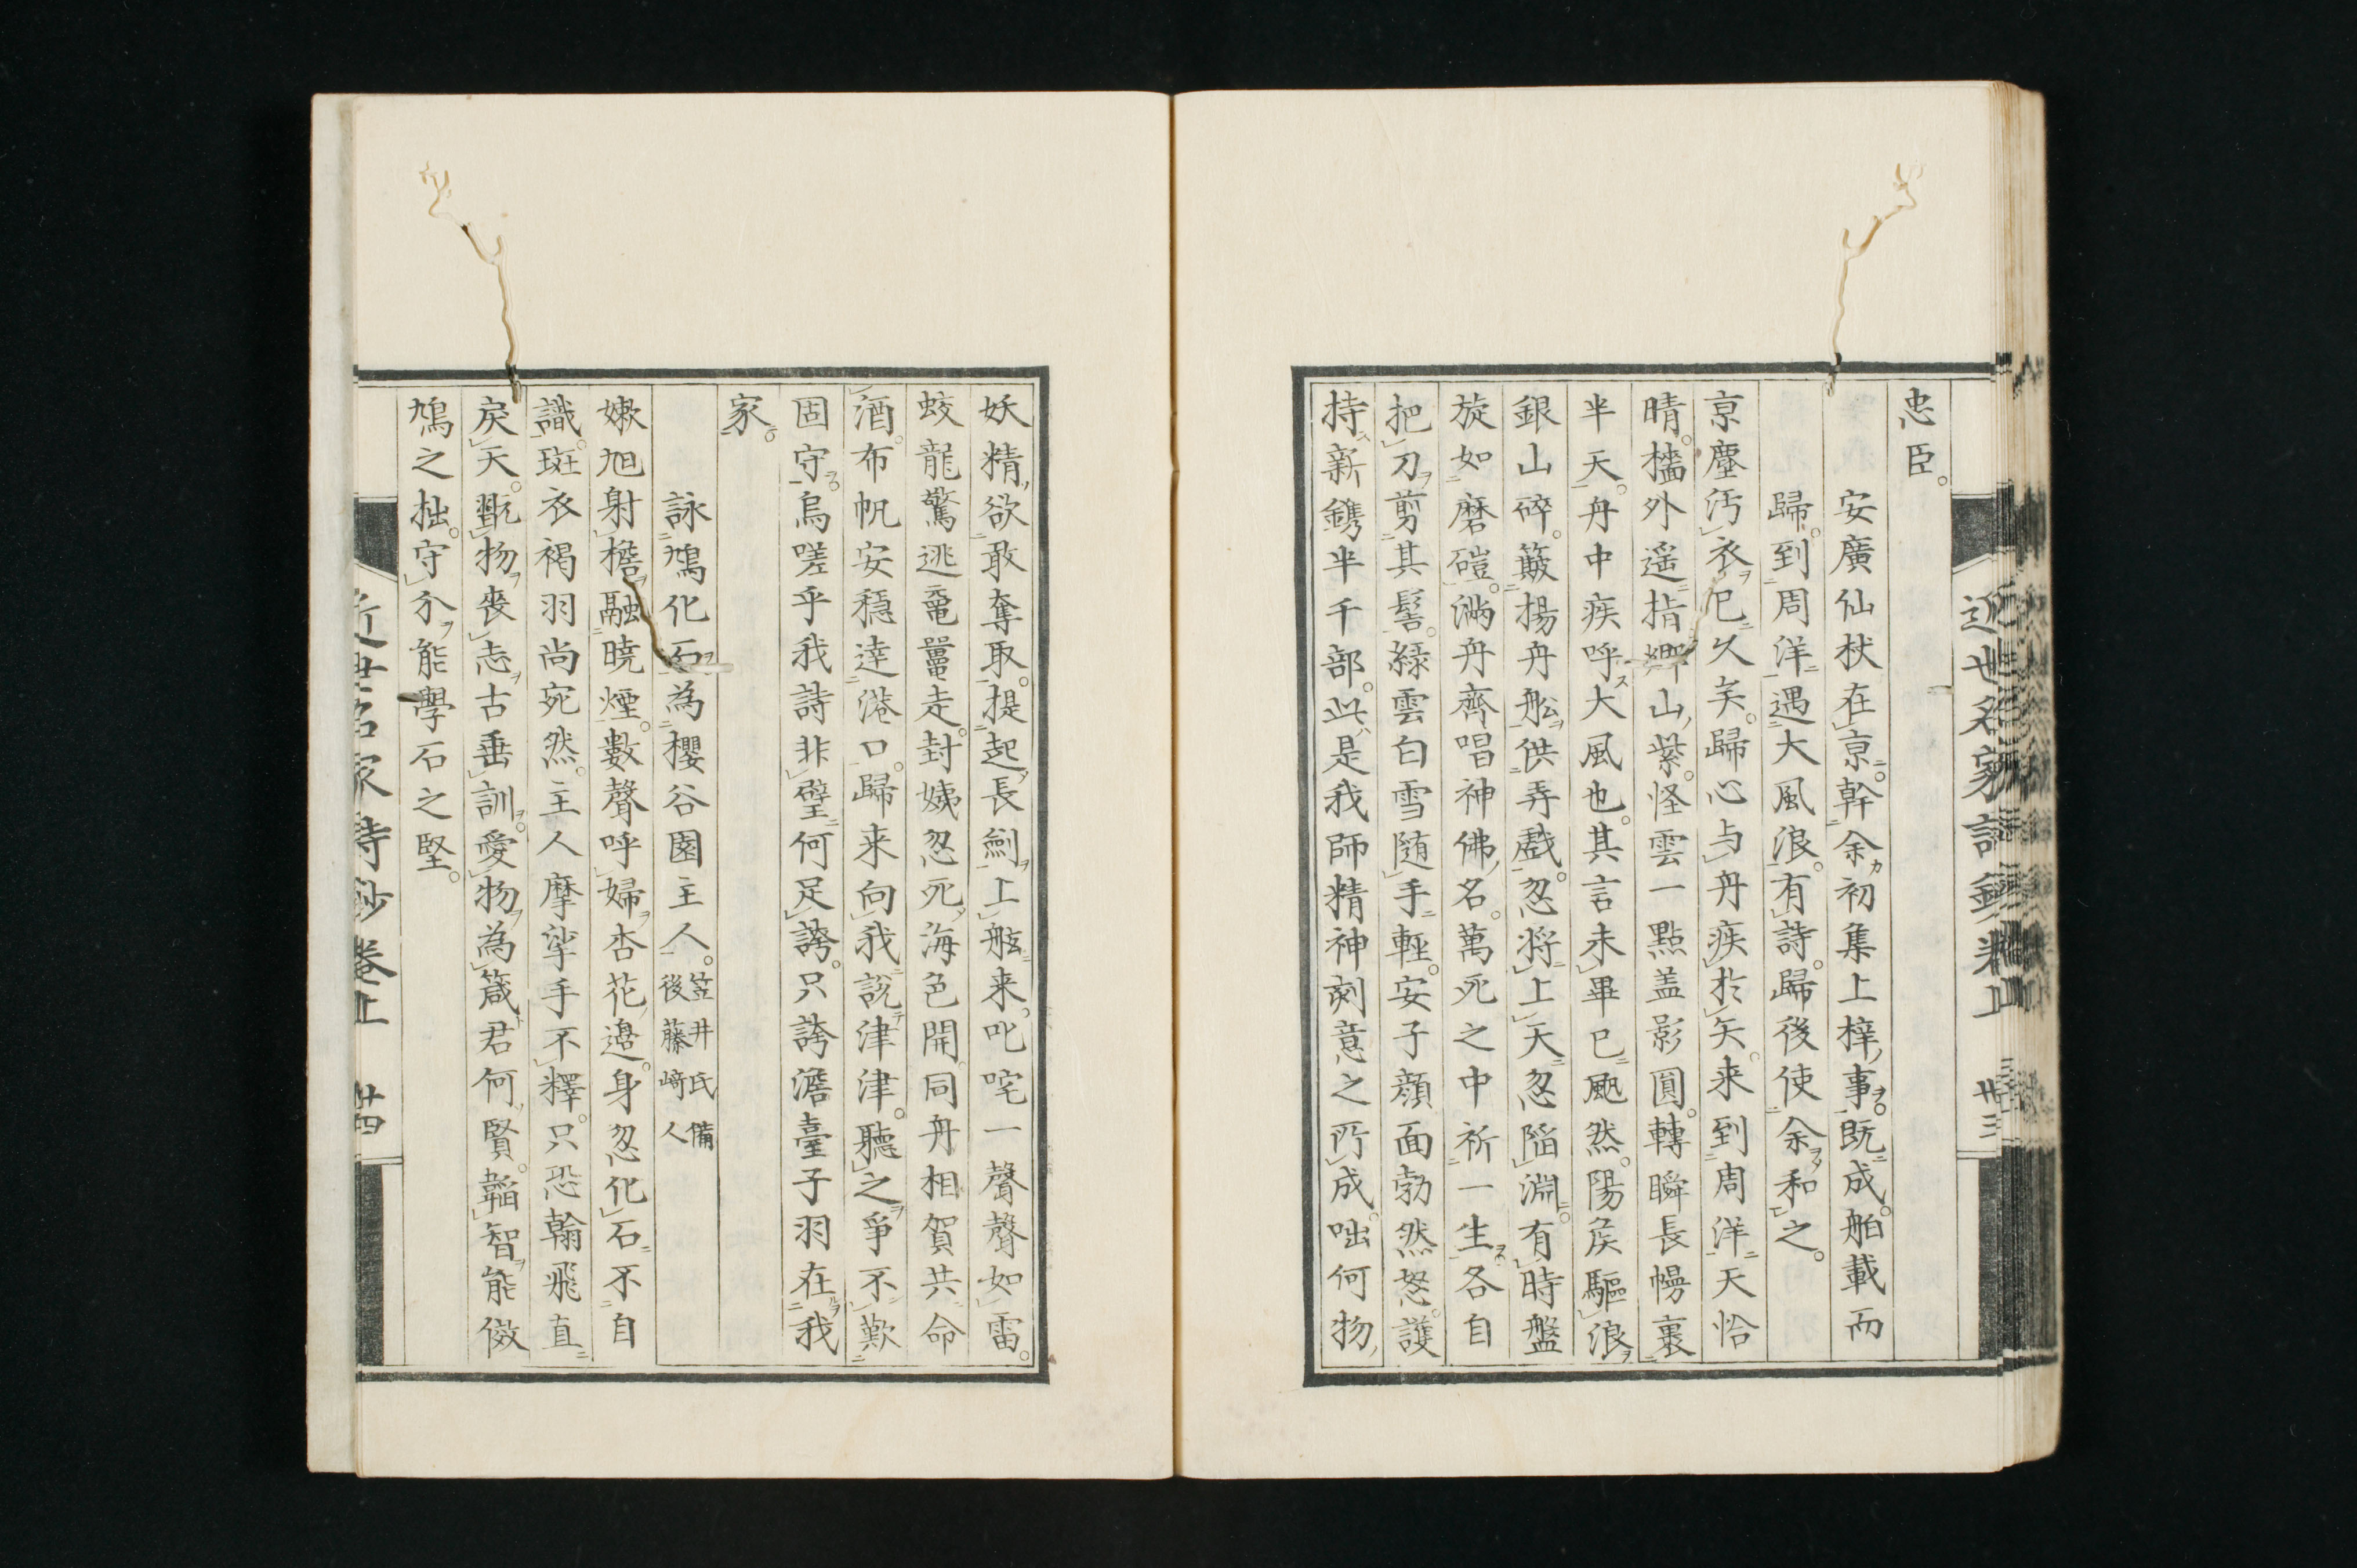 忠臣。
安廣仙杖在京。幹余初集上梓事。既成。舶載而
歸。到周洋遇大風浪。有詩。歸後使余和之。
京塵汚衣已久矣。歸心与舟疾於矢。来到周洋天恰
晴。檣外遥指郷山紫。怪雲一點盖影圓。轉瞬長幔裏
半天。舟中疾呼大風也。其言未畢已颫然。陽矦驅浪
銀山碎。簸揚舟舩供弄戲。忽将上天忽陷淵。有時盤
旋如磨磑。滿舟齊唱神佛名。萬死之中祈一生。各自
把刀剪其髻。綠雲白雪随手輕。安子顔面勃然怒。護
持新鐫半千部。此是我師精神刻意之所成。咄何物
妖精欲敢奪取。提起長劍上舷来。叱咤一聲聲如雷。
蛟龍驚逃黿鼉走。封姨忽死海色開。同舟相賀共命
酒。布帆安穏達港口。歸来向我說津津。聽之爭不歎
固守。烏嗟乎我詩非璧何足誇。只誇澹臺子羽在我
家。
詠鳩化石為櫻谷園主人。笠井氏備後藤崎人
嫩旭射檐融曉煙。數聲呼婦杏花邊。身忽化石不自
識。斑衣褐羽尚宛然。主人摩挲手不釋。只恐翰飛直
戾天。翫物喪志古垂訓。愛物為箴君何賢。韜智能傚
鳩之拙。守分能學石之堅。
近世名家詩鈔卷上 廿三
近世名家詩鈔卷上 廿四